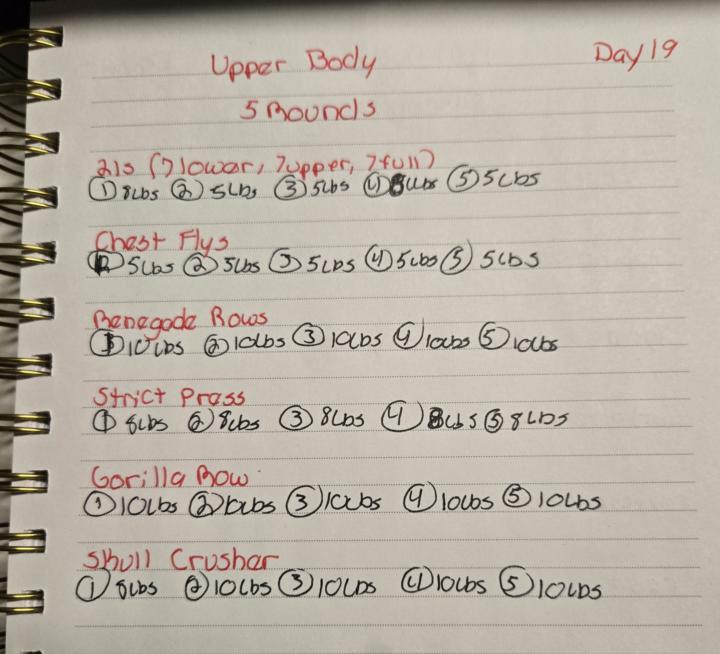 Upper Body
Day 19
5 Rounds
21s (7 lower, 7 upper, 7 full)
① 8Lbs ② 5Lbs ③ 5Lbs ④ 5Lbs ⑤ 5Lbs
Chest Flys
① 5Lbs ② 5Lbs ③ 5Lbs ④ 5Lbs ⑤ 5Lbs
Renegade Rows
① 10Lbs ② 10Lbs ③ 10Lbs ④ 10Lbs ⑤ 10Lbs
Strict Press
① 8Lbs ② 8Lbs ③ 8Lbs ④ 8Lbs ⑤ 8Lbs
Gorilla Row
① 10Lbs ② 10Lbs ③ 10Lbs ④ 10Lbs ⑤ 10Lbs
Skull Crusher
① 8Lbs ② 10Lbs ③ 10Lbs ④ 10Lbs ⑤ 10Lbs